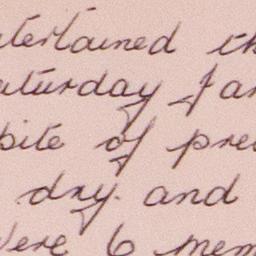 tertained th
aturday Jan
pite of prev
dry. and
Were 6 mem